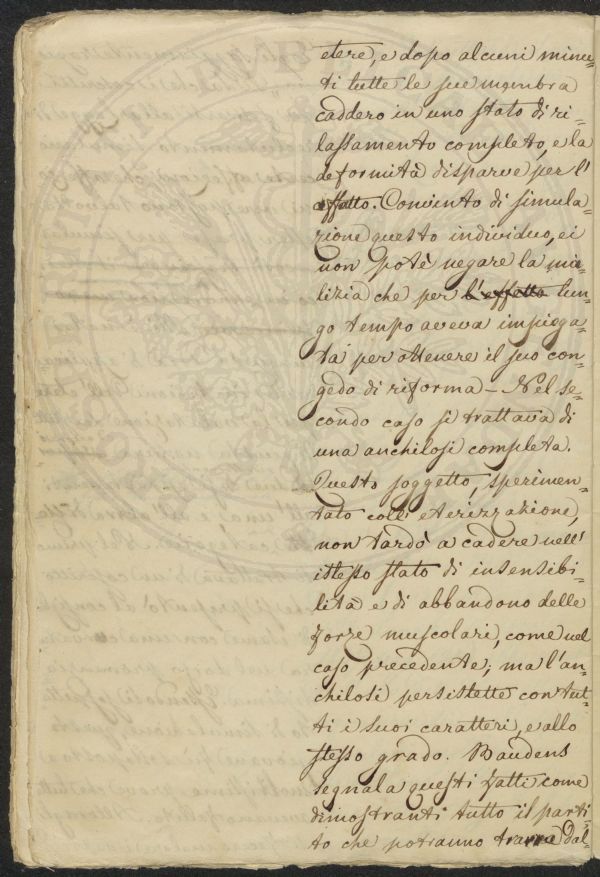 etere, e dopo alcuni minu=
ti tutte le sue membra
caddero in uno stato di ri=
lassamento completo, e la
deformità disparve per l'
affatto. Convinto di simula=
zione questo individuo, ei
non potè negare la ma=
lizia che per l'effetto lun=
go tempo aveva impiega=
ta per ottenere il suo con=
gedo di riforma – Nel se=
condo caso si trattava di
una anchilosi completa.
Questo soggetto, sperimen=
tato coll' eterizzazione,
non tardò a cadere nell'
istesso stato di insensibi=
lità e di abbandono delle
forze muscolari, come nel
caso precedente; ma l'an=
chilosi persistette con tut=
ti i suoi caratteri, e allo
stesso grado. Baudens
segnala questi fatti come
dimostranti tutto il parti=
to che potranno trarre dal=